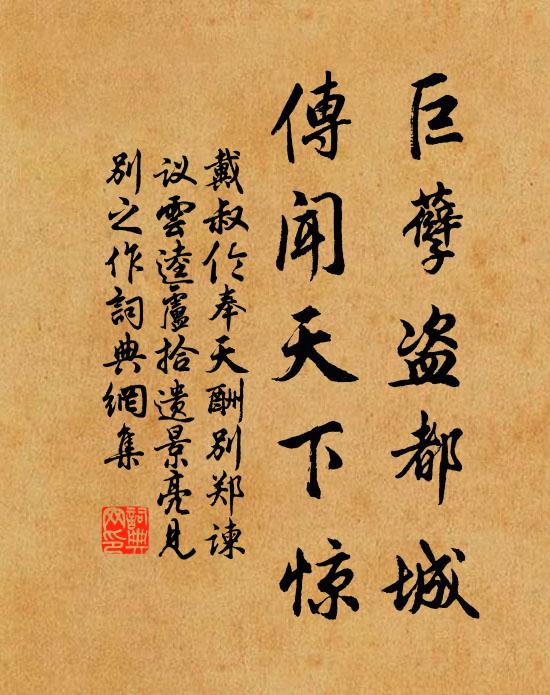 巨孽盗都城
傳闻天下惊
戴叔伦奉天酬别郑谏
议雲逵盧拾遗景亮见
别之作詞典網集
詞典網印